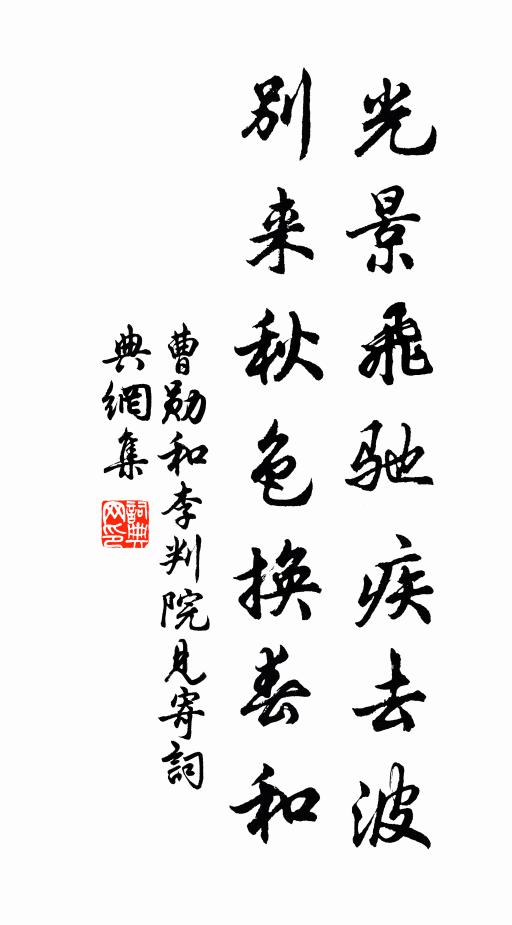 光景飛馳疾去波
別来秋色換春和
曹勛和李判院見寄詞
典網集
詞典网印